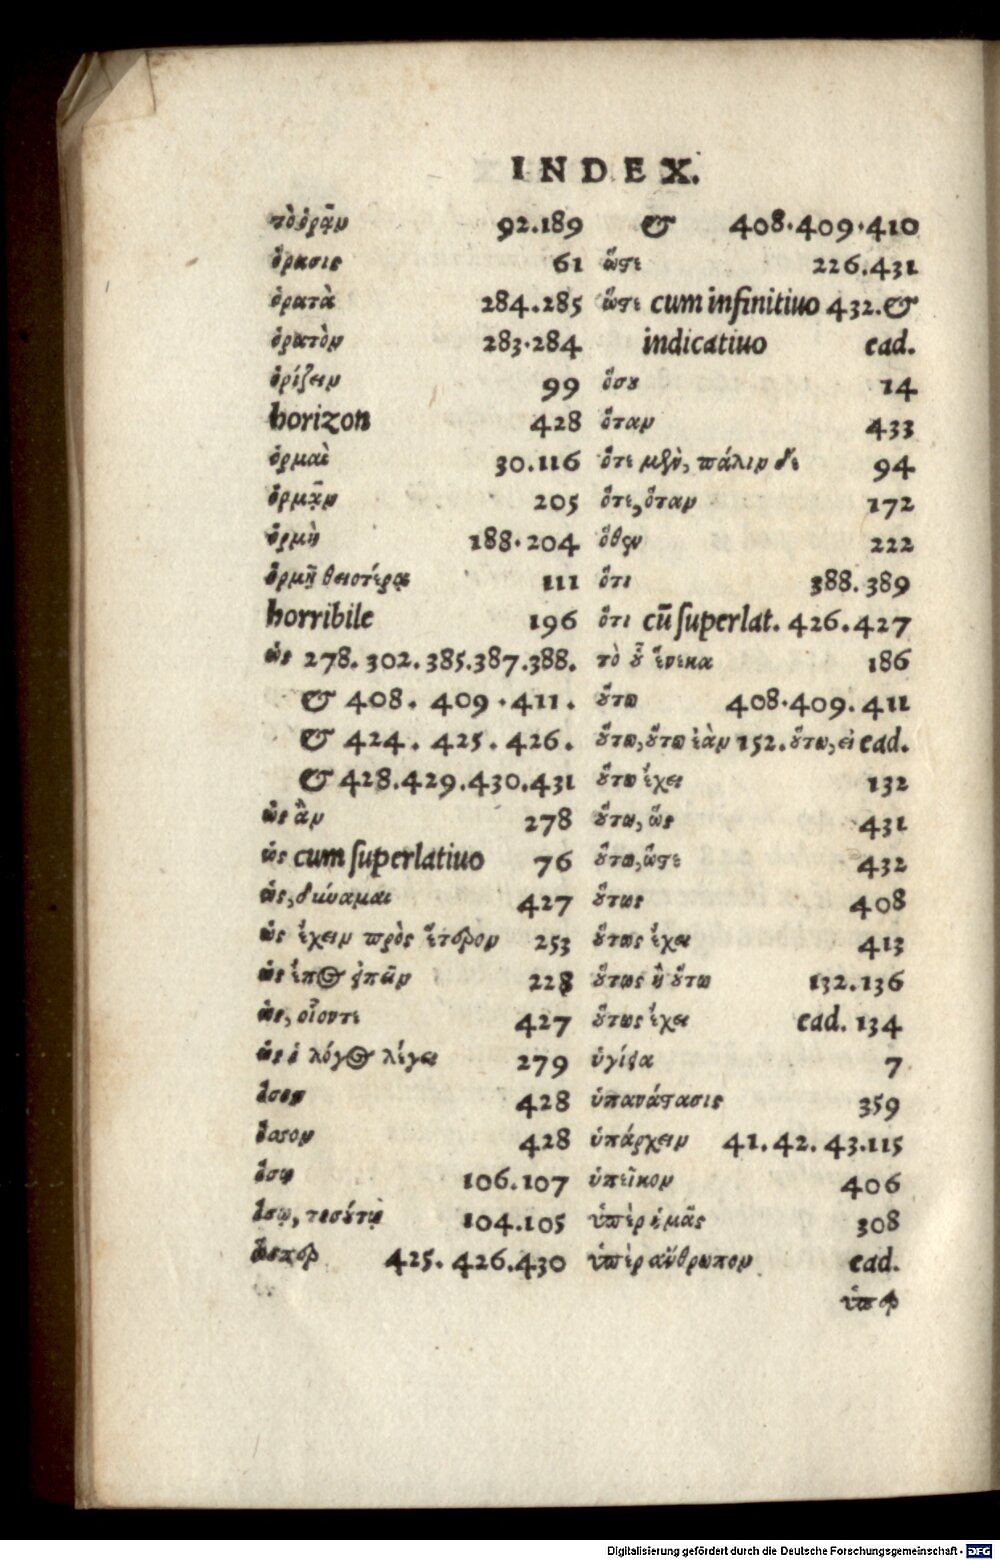 INDEX.
τὸ ὁρᾷν 92.189
ὅρασις 61
ὁρατὰ 284.285
ὁρατὸν 283.284
ὁρίζειν 99
horizon 428
ὁρμαὶ 30.116
ὁρμᾷν 205
ὁρμὴ 188.204
ὁρμῇ θειοτέρᾳ 111
horribile 196
ὡς 278. 302. 385.387.388.
& 408. 409.411.
& 424. 425. 426.
& 428.429.430.431
ὡς ἂν 278
ὡς cum superlatiuo 76
ὡς, δύναμαι 427
ὡς ἔχειν πρὸς ἕτερον 253
ὡς ἔπος εἰπεῖν 228
ὡς, οἷοντε 427
ὡς ὁ λόγος λέγει 279
428
ὅσον 428
106.107
ὅσῳ, τοσούτῳ 104.105
ὥσπερ 425. 426.430
& 408.409.410
ὥστε 226.431
ὥστε cum infinitiuo 432.&
indicatiuo ead.
ὅσου 14
ὅταν 433
ὅτε μὲν, πάλιν δὲ 94
ὅτε, ὅταν 172
ὅθεν 222
ὅτι 388.389
ὅτι cū superlat. 426.427
τὸ οὗ ἕνεκα 186
οὕτω 408.409.411
οὕτω, οὕτω ἐὰν 152. οὕτω, εἰ ead.
οὕτω ἔχει 132
οὕτω, ὡς 431
οὕτω, ὥστε 432
οὕτως 408
οὕτως ἔχει 413
οὕτως ἢ οὕτω 132.136
οὕτως ἔχει ead. 134
ὑγίεια 7
ὑπανάστασις 359
ὑπάρχειν 41. 42. 43.115
ὑπεῖκον 406
ὑπὲρ ἡμᾶς 308
ὑπὲρ ἄνθρωπον ead.
ὑπερ
Digitalisierung gefördert durch die Deutsche Forschungsgemeinschaft - DFG